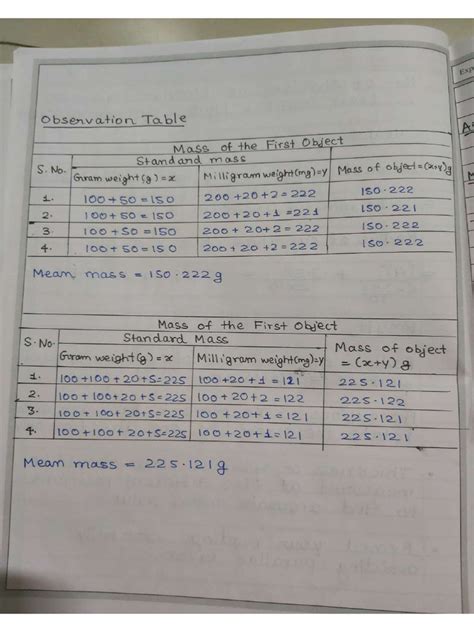 Exp
Observation Table
Mass of the First Object
Standard mass
S. No. Gram weight(g)=x Milligram weight(mg)=y Mass of object=(x+y)g
1. 100+50=150 200+20+2=222 150.222
2. 100+50=150 200+20+1=221 150.221
3. 100+50=150 200+20+2=222 150.222
4. 100+50=150 200+20+2=222 150.222
Mean mass = 150.222g
Mass of the First Object
Standard Mass
S.No. Gram weight(g)=x Milligram weight(mg)=y Mass of object
=(x+y) g
1. 100+100+20+5=225 100+20+1=121 225.121
2. 100+100+20+5=225 100+20+2=122 225.122
3. 100+100+20+5=225 100+20+1=121 225.121
4. 100+100+20+5=225 100+20+1=121 225.121
Mean mass = 225.121g